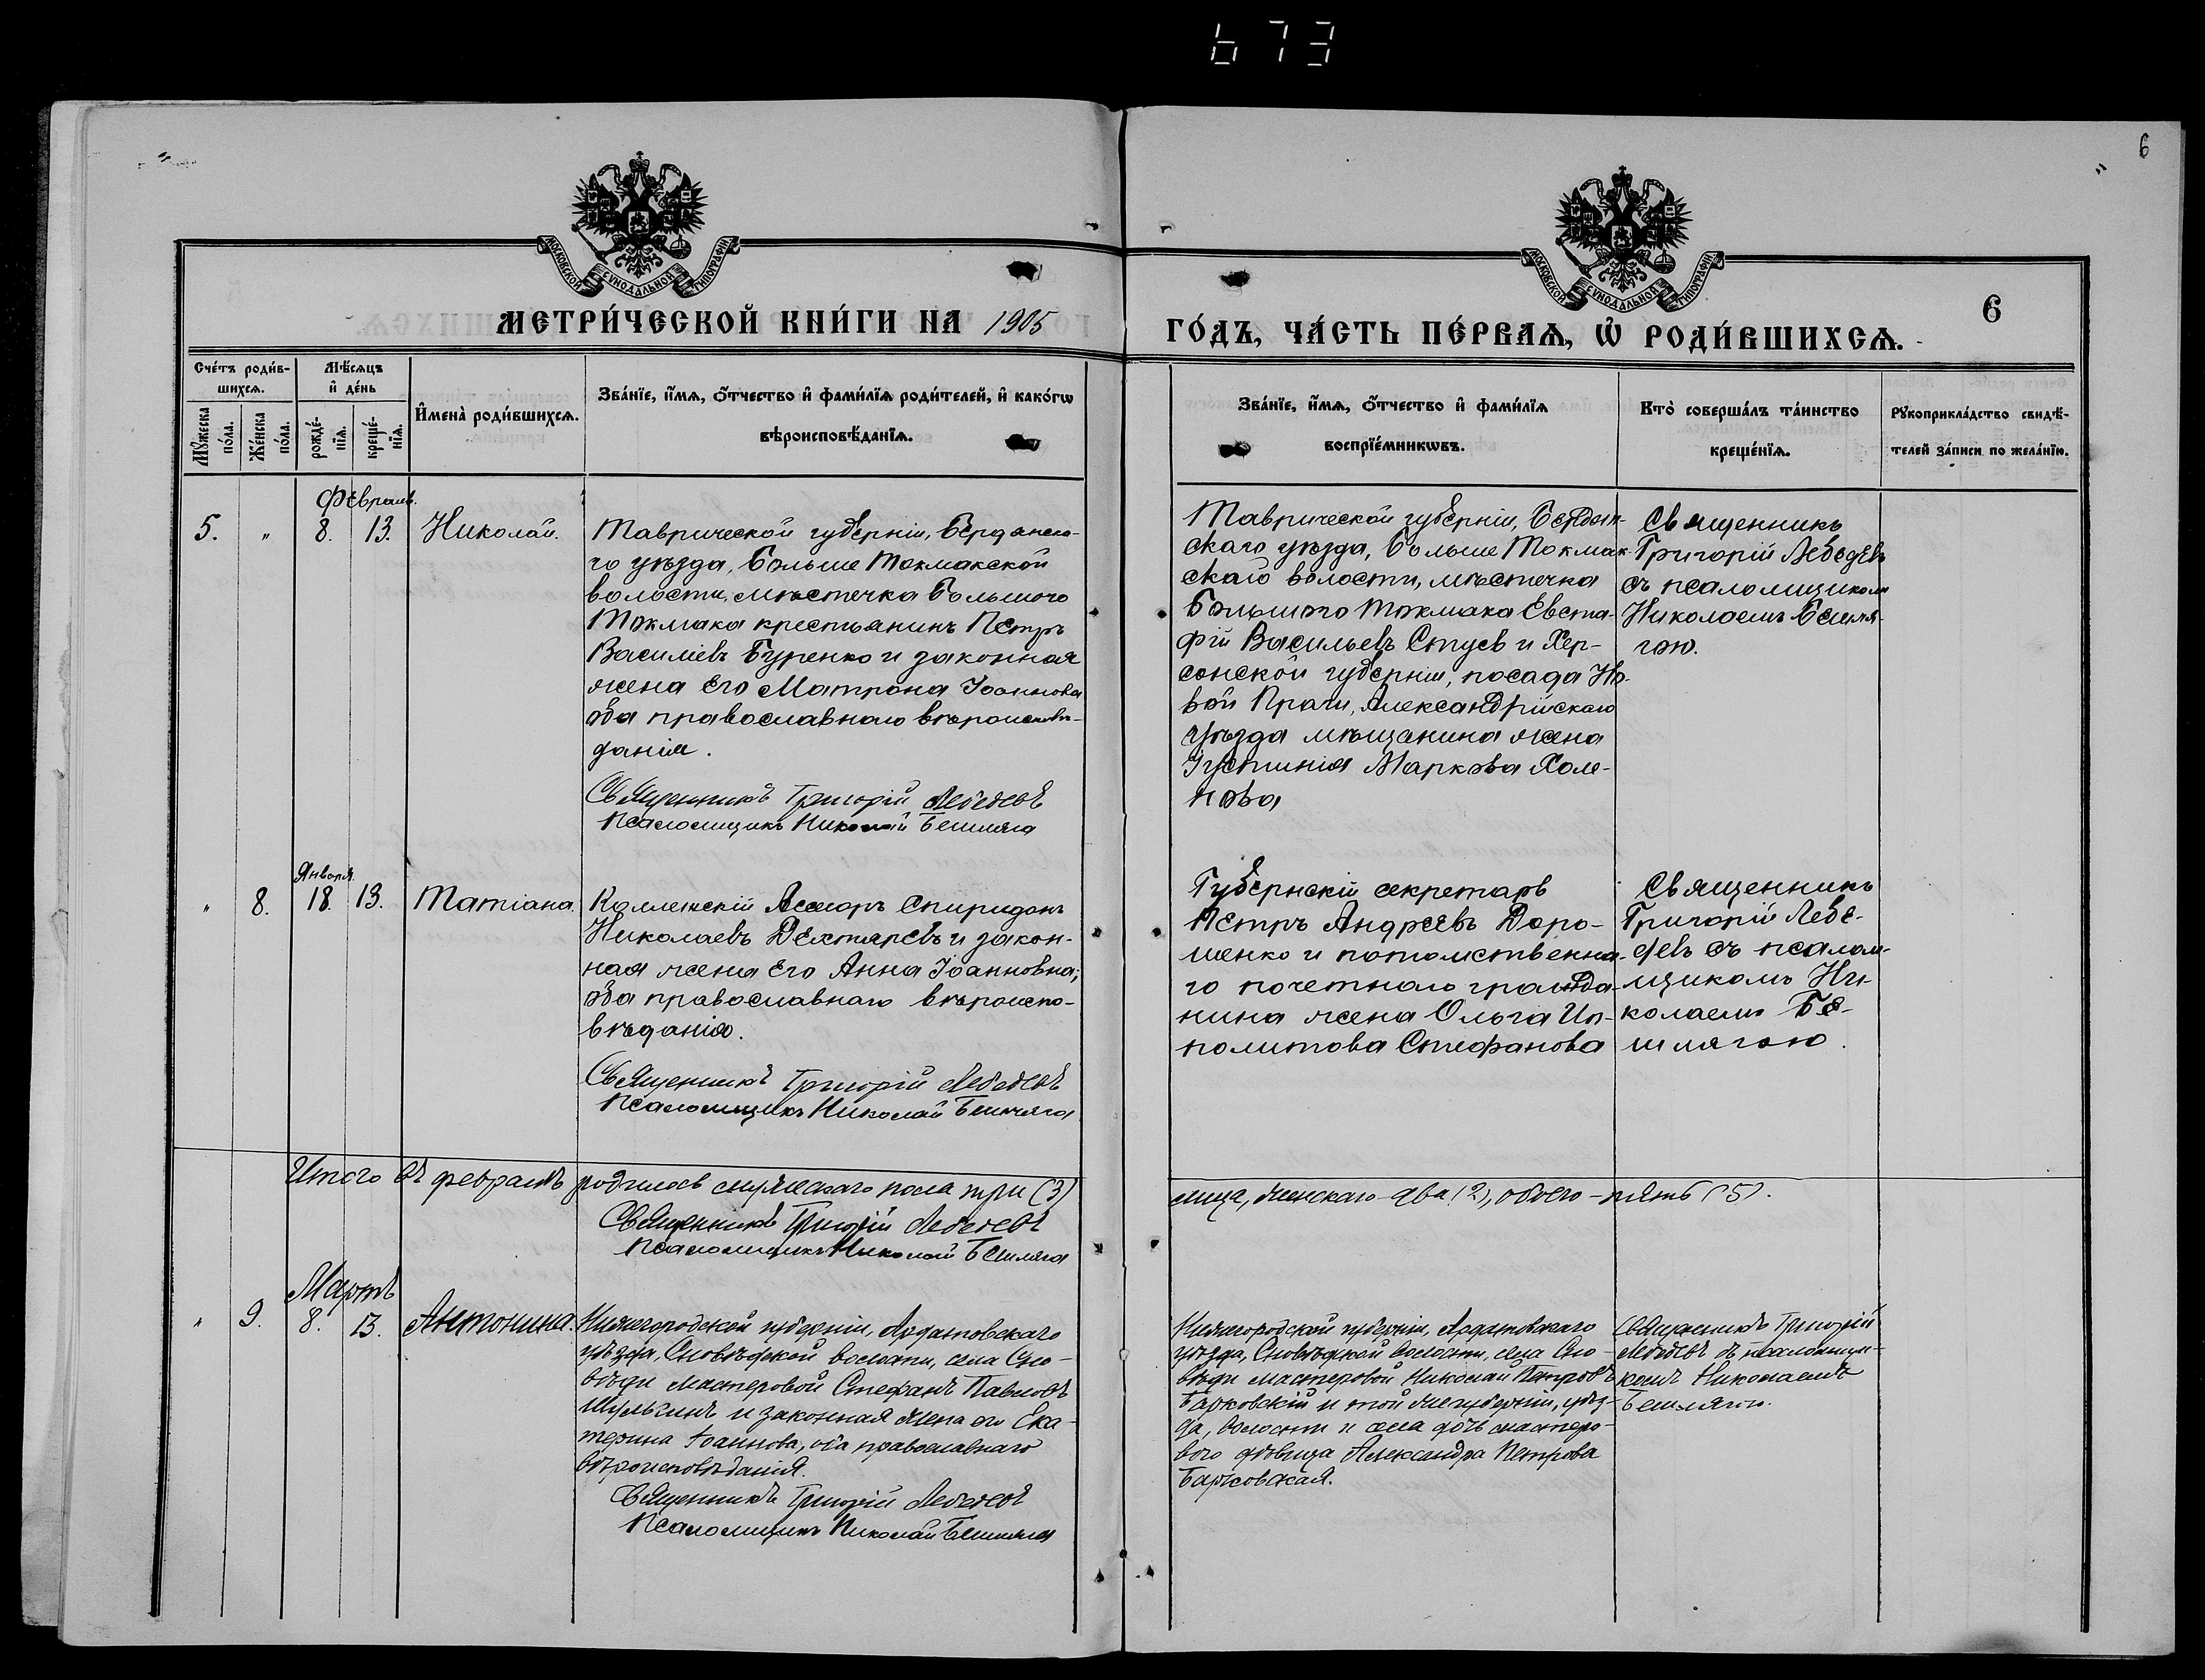 673
6
МОСКОВСКОЙ СѴНОДАЛЬНОЙ ТИПОГРАФІИ
МОСКОВСКОЙ СѴНОДАЛЬНОЙ ТИПОГРАФІИ
МЕТРИ́ЧЕСКОЙ КНИ́ГИ НА 1905
ГО́ДЪ, ЧА́СТЬ ПЕ́РВАѦ, Ѡ҆ РОДИ́ВШИХСѦ.
6
Сче́тъ роди́в-
шихсѧ.
Мꙋ́жеска
по́ла.
Же́нска
по́ла.
Мѣ́сѧцъ
и҆ де́нь
рожде́-
нїѧ.
креще́-
нїѧ.
И҆мена̀ роди́вшихсѧ.
Зва́нїе, и҆́мѧ, ѻ҆́тчество и҆ фами́лїѧ роди́телей, и҆ како́гѡ
вѣроисповѣ́данїѧ.
Зва́нїе, и҆́мѧ, ѻ҆́тчество и҆ фами́лїѧ
воспрїе́мникѡвъ.
Кто̀ соверша́лъ та́инство
креще́нїѧ.
Рꙋкоприкла́дство свидѣ́-
телей за́писи по жела́нїю.
Февраль.
5. " 8. 13. Николай.
Таврической губерніи, Бердянска-
го уѣзда, Больше Токмакской
волости, мѣстечка Большого
Токмака крестьянинъ Петръ
Василіевъ Буренко и законная
жена его Матрона Іоаннова
оба православнаго вѣроисповѣ-
данія.
Священникъ Григорій Лебедевъ
Псаломщикъ Николай Бешляга
Таврической губерніи, Бердян-
скаго уѣзда, Больше Токмак-
скаго волости, мѣстечка
Большого Токмака Евста-
фій Васильевъ Стуев и Хер-
сонской губерніи, посада Но-
вой Праги, Александрійскаго
уѣзда мѣщанина жена
Іустинія Маркова
Священникъ
Григорій Лебедевъ
съ псаломщикомъ
Николаемъ Бешля-
гою.
Января.
" 8. 18. 13. Татіана.
Коллежскій Ассесоръ Спиридонъ
Николаевъ Дехтяревъ и закон-
ная жена его Анна Іоанновна;
оба православнаго вѣроиспо-
вѣданія.
Священникъ Григорій Лебедевъ
Псаломщикъ Николай Бешляга
Губернскій секретарь
Петръ Андреевъ Доро-
шенко и потомственна-
го почетнаго гражда-
нина жена Ольга Ип-
политова Стефанова
Священникъ
Григорій Лебе-
девъ съ псалом-
щикомъ Ни-
колаемъ Бе-
шлягою.
Итого въ февралѣ родилось мужескаго пола три (3)
лица, женскаго - два (2), обоего - пять (5).
Священникъ Григорій Лебедевъ
Псаломщикъ Николай Бешляга
Мартъ
" 9. 8. 13. Антонина.
Нижегородской губерніи, Ардатовскаго
уѣзда, Сновѣдской волости, села Сно-
вѣди мастеровой Стефанъ Павловъ
Шулькинъ и законная жена его Ека-
терина Іоаннова, оба православнаго
вѣроисповѣданія.
Священникъ Григорій Лебедевъ
Псаломщикъ Николай Бешляга
Нижегородской губерніи, Ардатовскаго
уѣзда, Сновѣдской волости, села Сно-
вѣди мастеровой Николай Петровъ
Барковскій и той же губерніи, уѣз-
да, волости и села дочь мастеро-
вого дѣвица Александра Петрова
Барковская.
Священникъ Григорій
Лебедевъ съ псаломщи-
комъ Николаемъ
Бешлягою.